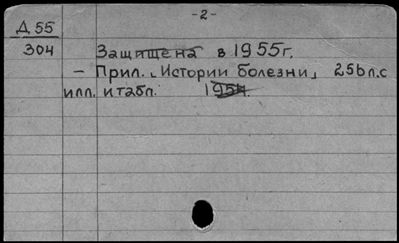 -2-
Д 55
304 Защищена в 1955г.
- Прил. „Истории болезни" 256 л. с
илл. и табл. 1954.